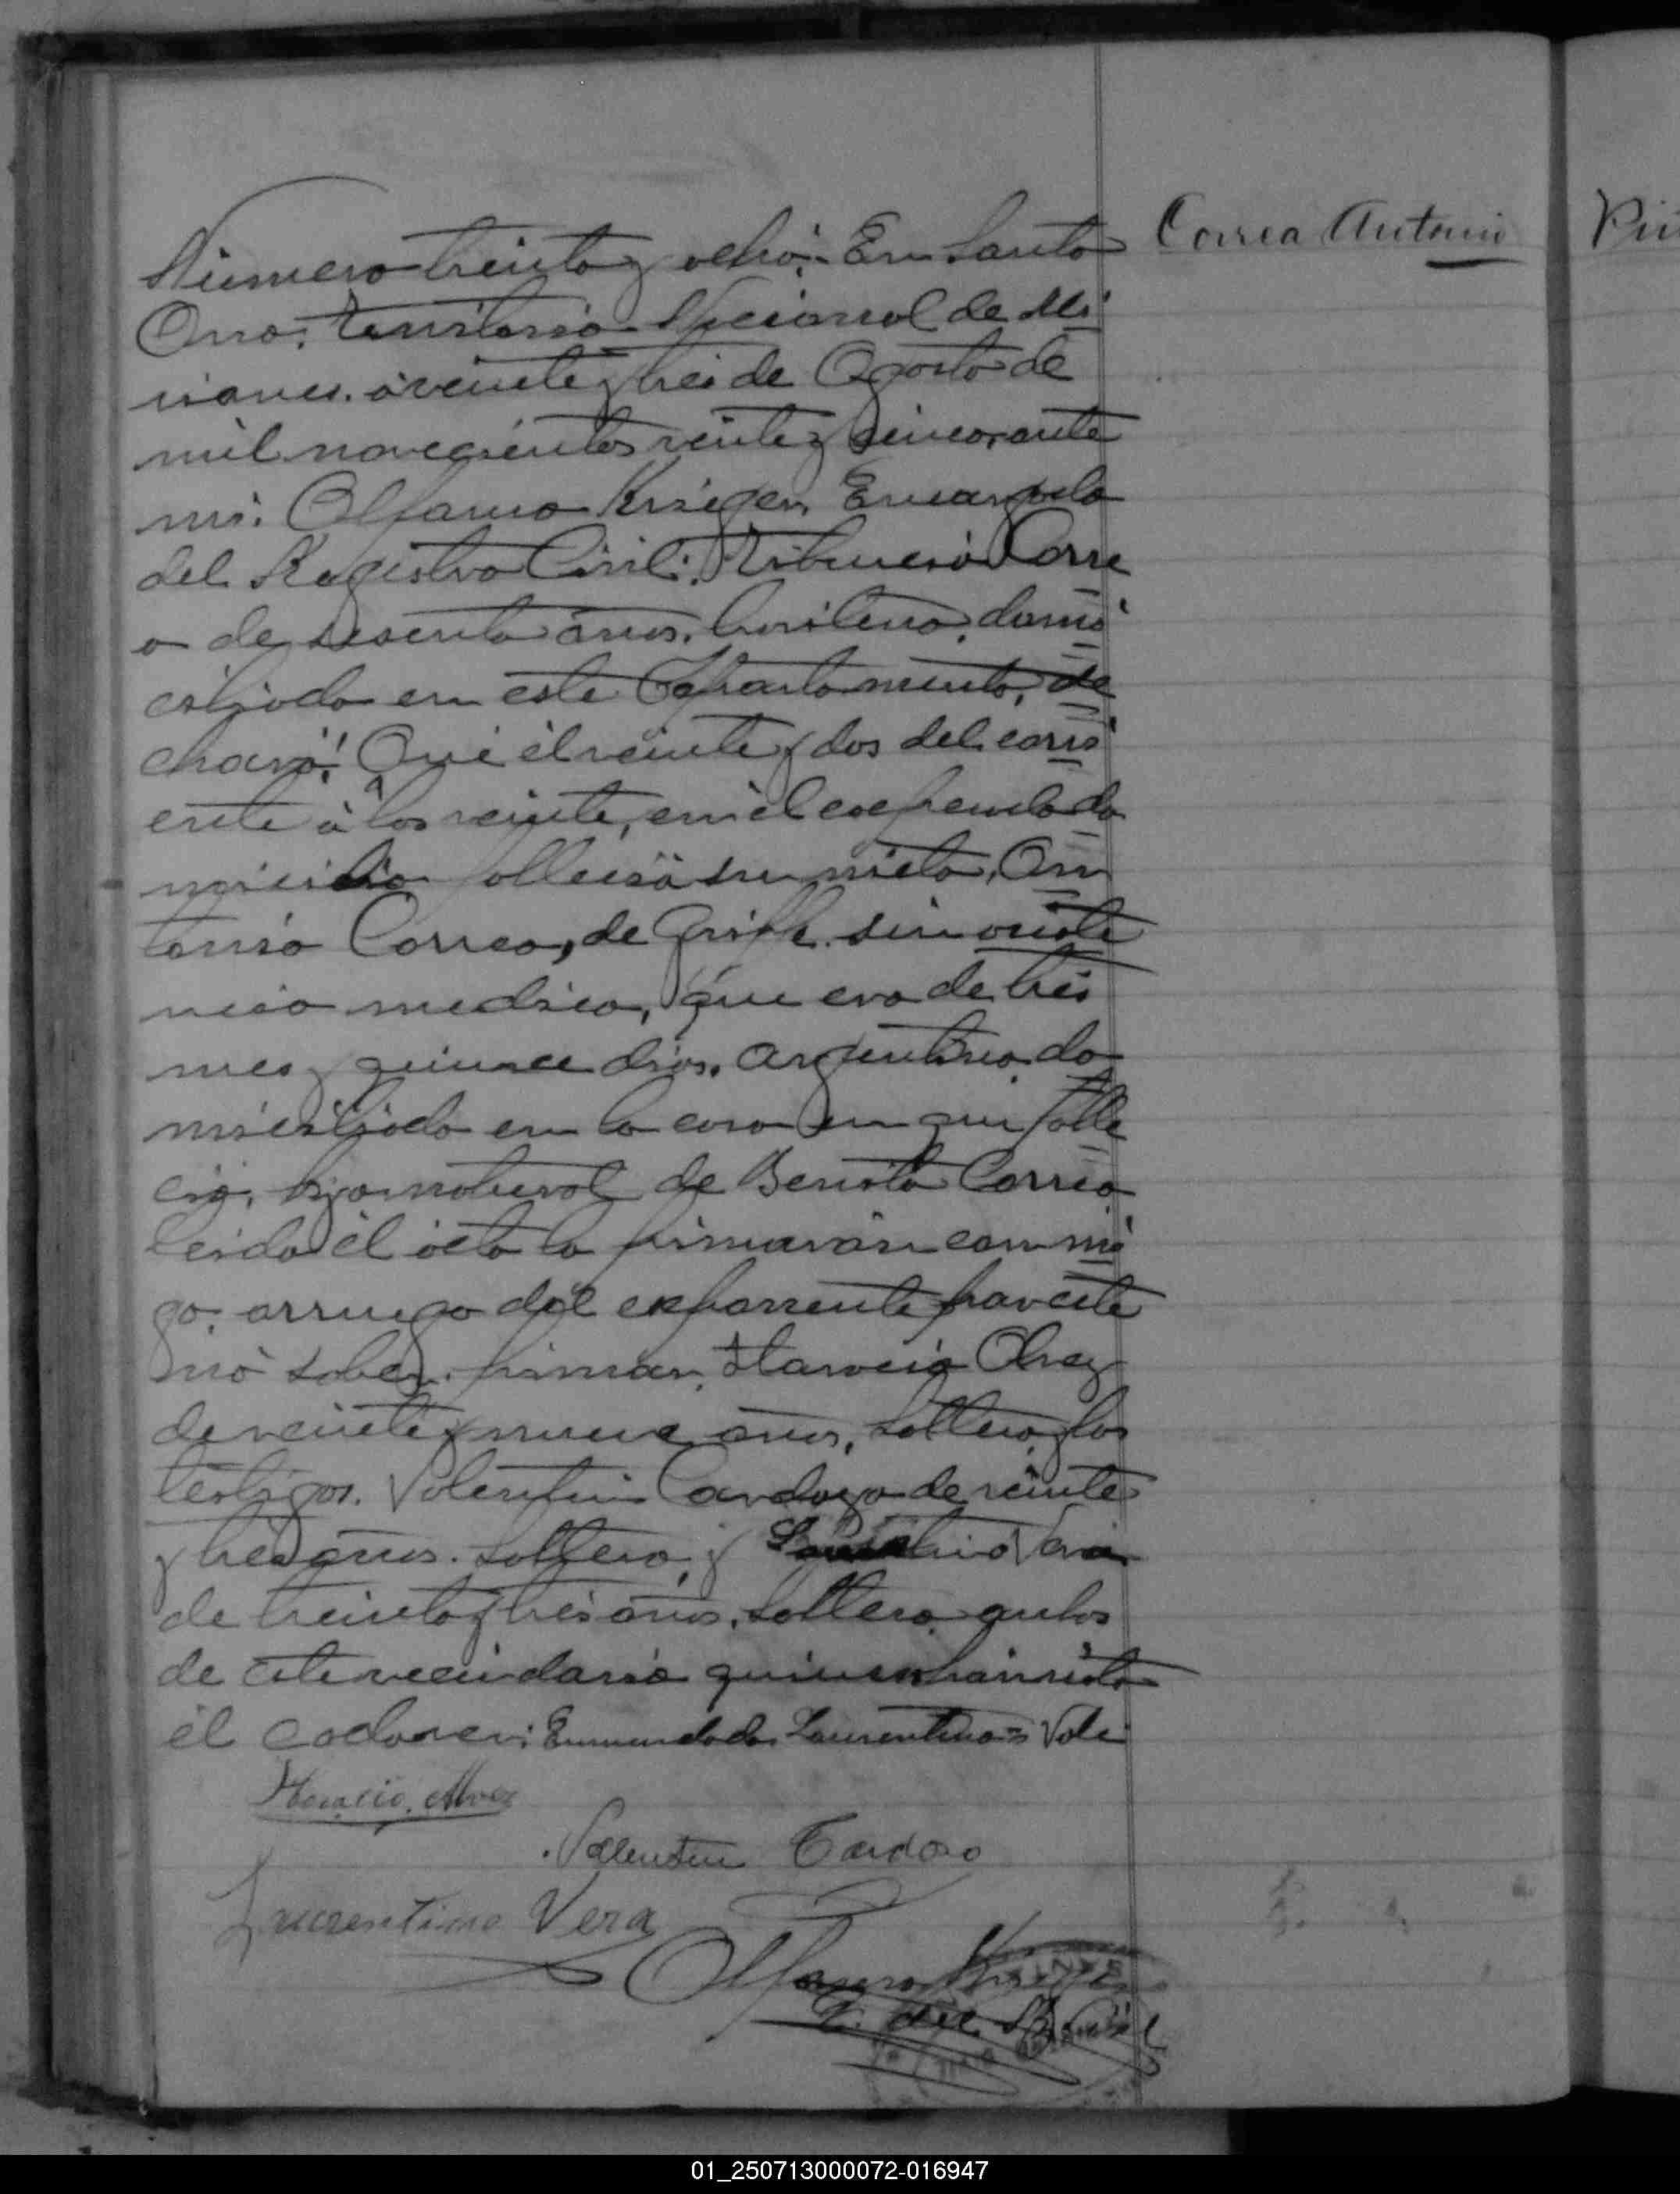 Correa Antonio
Numero treinta y ocho: En Santa
Ana, territorio Nacional de Mi
siones, á veinte y tres de Agosto de
mil novecientos veinte y cinco, ante
mi. Krieger, Encargado
del Registro Civil: Corre
a de sesenta años, brasilero, domi
ciliado en este Departamento, de
claró: Que él veinte y dos del corri
ente á las veinte, en él expresado do
micilio fallesió su nieto, An
tonio Correa, de gripe sin asiste
ncia medica, que era de tres
mes y quince dias, argentino do
miciliado en la casa en que falle
ció, hijo natural de Benita Correa
Leida él acta la firmaron conmi
go, arruego del exponente por este
nó saber firmar, Horacio Alvez
de veinte y nueve años, soltero y los
testigos. Valentin Cardozo de veinte
y tres años, soltero, y Laurentino Vera
de treinta y tres años, soltero, ambos
de este vecindario quienes han visto
él cadaver: Enmendado Laurentino = Vale
Horacio Alvez
Valentin Cardoso
Laurentino Vera
Krieger
E. del R. Civil
01_250713000072-016947